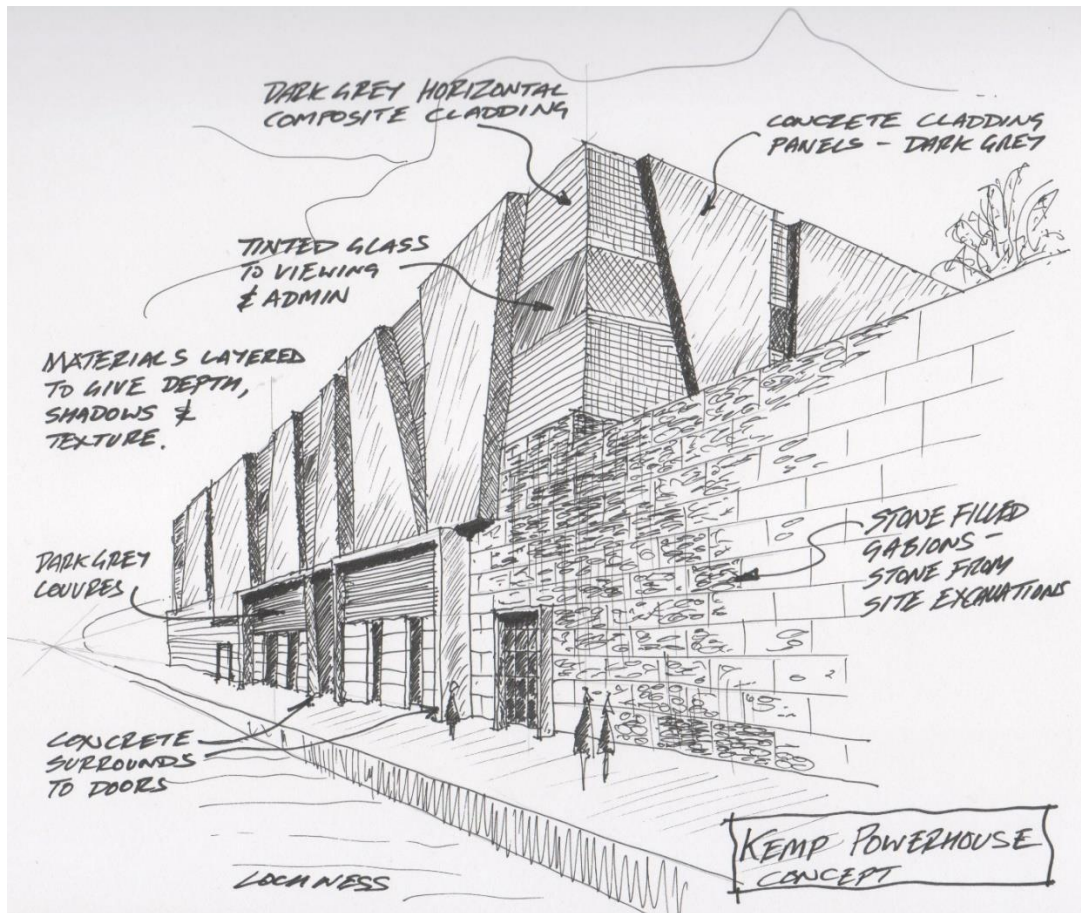 DARK GREY HORIZONTAL
COMPOSITE CLADDING
CONCRETE CLADDING
PANELS - DARK GREY
TINTED GLASS
TO VIEWING
& ADMIN
MATERIALS LAYERED
TO GIVE DEPTH,
SHADOWS &
TEXTURE.
DARK GREY
LOUVRES
STONE FILLED
GABIONS -
STONE FROM
SITE EXCAVATIONS
CONCRETE
SURROUNDS
TO DOORS
LOCH NESS
KEMP POWERHOUSE
CONCEPT